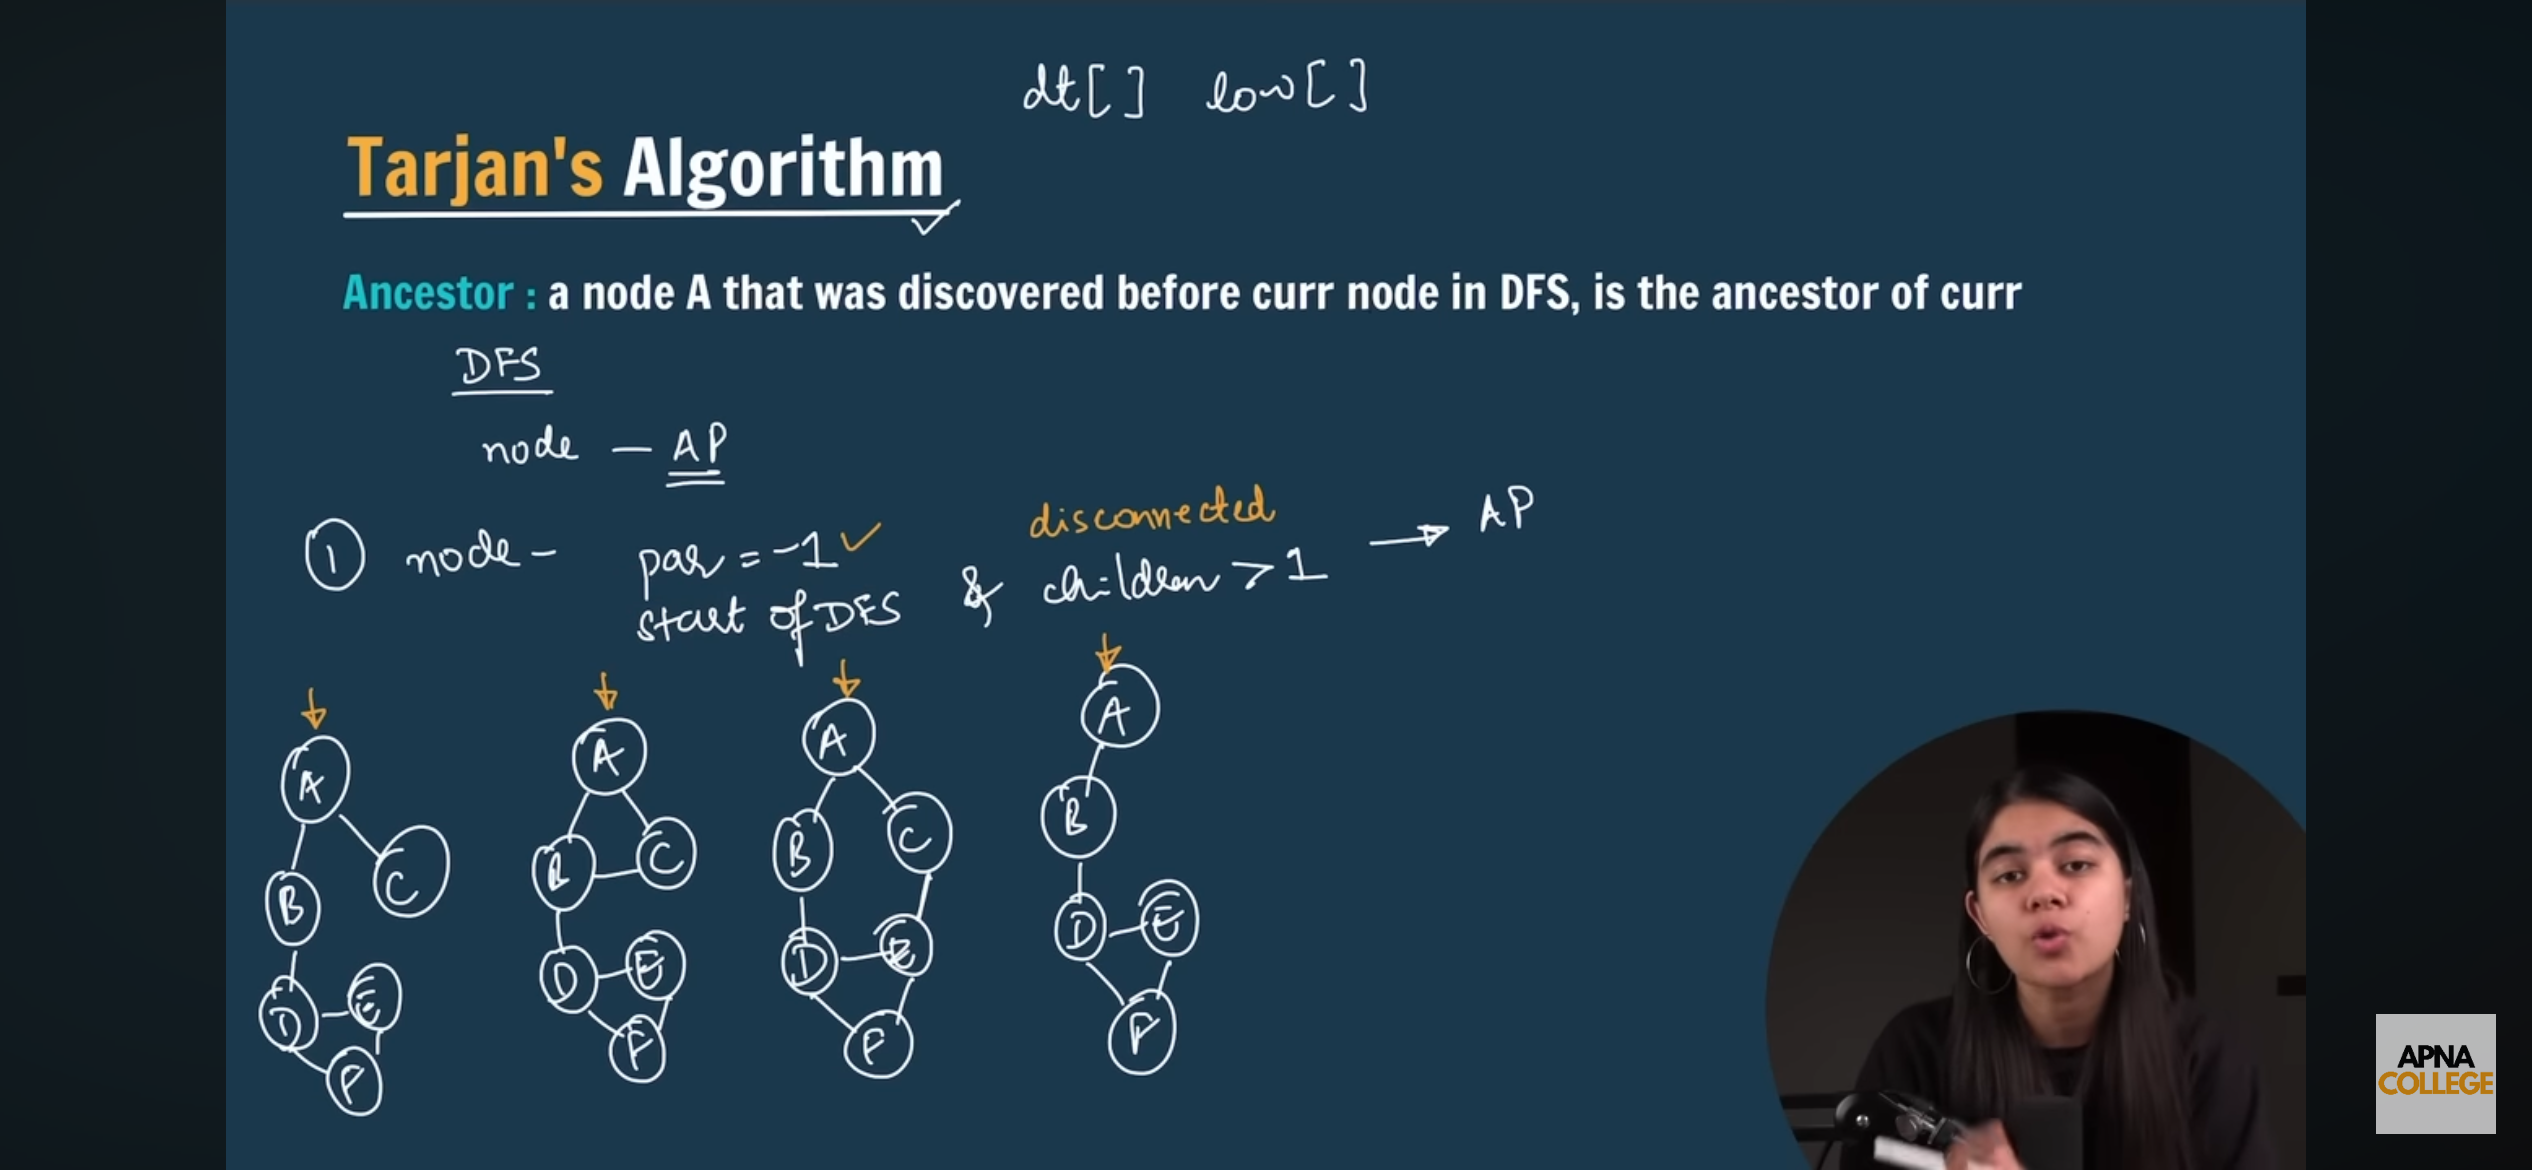 dt[ ] low[ ]
Tarjan's Algorithm
Ancestor : a node A that was discovered before curr node in DFS, is the ancestor of curr
DFS
node — AP
① node - par = -1 ✓ & disconnected children > 1 → AP
start of DFS
A
B
C
D
E
F
A
B
C
D
E
F
A
B
C
D
E
F
A
B
D
E
F
APNA
COLLEGE